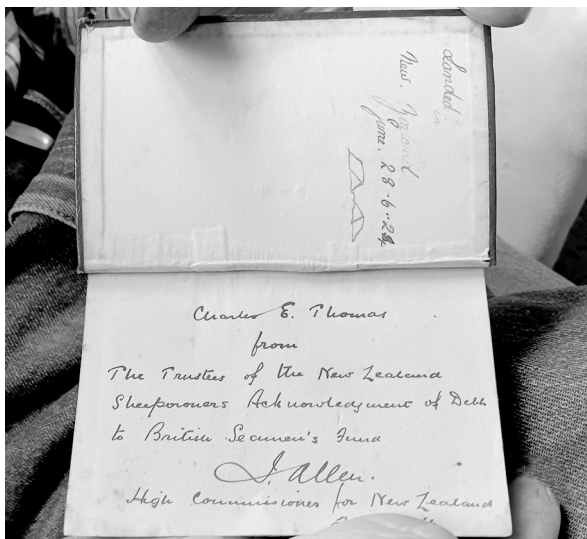 Landed
in
New. Zealand
June. 28.6.24
Charles E. Thomas
from
The Trustees of the New Zealand
Sheepowners Acknowledgment of Debt
to British Seamen's Fund
J. Allen.
High Commissioner for New Zealand